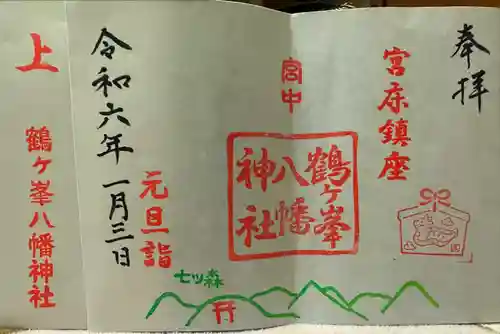 奉拝
宮床鎮座
宮中
鶴ヶ峯
八幡
神社
元旦詣
令和六年 一月三日
七ツ森
上
鶴ヶ峯八幡神社